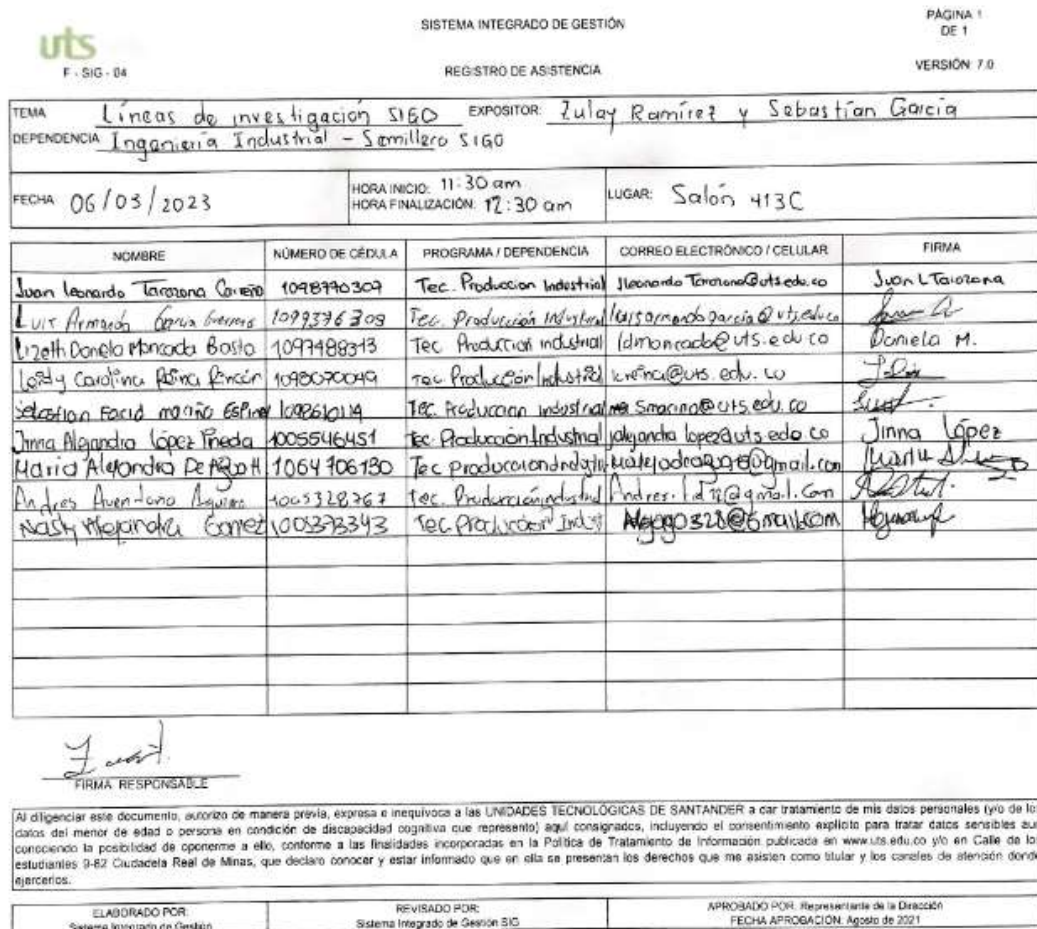 SISTEMA INTEGRADO DE GESTIÓN
PÁGINA 1
DE 1
uts
F - SIG - 04
REGISTRO DE ASISTENCIA
VERSIÓN 7.0
TEMA Líneas de investigación SIGO EXPOSITOR: Zulay Ramírez y Sebastían García
DEPENDENCIA Ingeniería Industrial - Semillero SIGO
FECHA 06/03/2023
HORA INICIO: 11:30 am
HORA FINALIZACIÓN: 12:30 am
LUGAR: Salón 413C
NOMBRE NÚMERO DE CÉDULA PROGRAMA / DEPENDENCIA CORREO ELECTRÓNICO / CELULAR FIRMA
Juan leonardo Tarazona Carreño 1098770309 Tec. Produccion Industrial Juan L Tarazona
Luis Armando García 1099376308 Tec. Producción Industrial luisarmandogarcia@uts.edu.co
Lizeth Daniela Moncada Tec Produccion industrial ldmoncada@uts.edu.co Daniela M.
Carolina 1098070049 Tec Producción Industrial @uts.edu.co
Sebastian mariño Tec. Produccion industrial Smarino@uts.edu.co
Jinna Alejandra López Pineda 1005546451 Tec. Producción Industrial Jinna López
Maria Alejandra De 1064706130 Tec produccion @gmail.com
Andres Aquino 1005328767 Tec. Producción industrial @gmail.com
Alejandra Gomez 1005373343 Tec Producción
FIRMA RESPONSABLE
Al diligenciar este documento, autorizo de manera previa, expresa e inequívoca a las UNIDADES TECNOLÓGICAS DE SANTANDER a dar tratamiento de mis datos personales (y/o de los
datos del menor de edad o persona en condición de discapacidad cognitiva que represento) aquí consignados, incluyendo el consentimiento explícito para tratar datos sensibles aun
conociendo la posibilidad de oponerme a ello, conforme a las finalidades incorporadas en la Política de Tratamiento de Información publicada en www.uts.edu.co y/o en Calle de los
estudiantes 9-82 Ciudadela Real de Minas, que declaro conocer y estar informado que en ella se presentan los derechos que me asisten como titular y los canales de atención donde
ejercerlos.
ELABORADO POR:
Sistema Integrado de Gestión
REVISADO POR:
Sistema Integrado de Gestión SIG
APROBADO POR: Representante de la Dirección
FECHA APROBACIÓN: Agosto de 2021